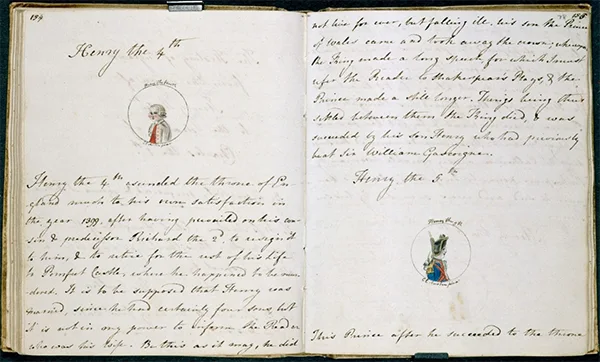 154
Henry the 4th
Henry the 4th ascended the throne of En=
gland much to his own satisfaction in
the year 1399, after having prevailed on his cou=
sin & predecessor Richard the 2d to resign it
to him, & to retire for the rest of his Life
to Pomfret Castle, where he happened to be mur=
dered. It is to be supposed that Henry was
married, since he had certainly four sons, but
it is not in my power to inform the Reader
who was his Wife. Be this as it may, he did
155
not live for ever, but falling ill, his son the Prince
of Wales came and took away the crown; whereupon
the King made a long speech, for which I must
refer the Reader to Shakespear's Plays, & the
Prince made a still longer. Things being thus
settled between them the King died, & was
succeeded by his son Henry who had previously
beat Sir William Gascoigne.
Henry the 5th
Henry the 5th
This Prince after he succeeded to the throne